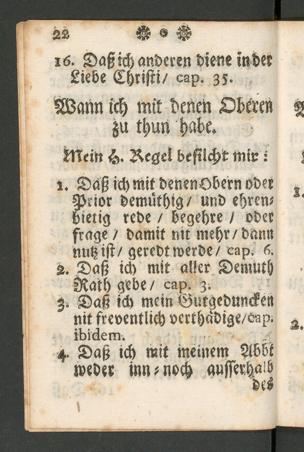 22
16. Daß ich anderen diene in der
Liebe Christi/ cap. 35.
Wann ich mit denen Oberen
zu thun habe.
Mein H. Regel befilcht mir:
1. Daß ich mit denen Obern oder
Prior demüthig/ und ehren-
bietig rede/ begehre/ oder
frage/ damit nit mehr/ dann
nutz ist/ geredt werde/ cap. 6.
2. Daß ich mit aller Demuth
Rath gebe/ cap. 3.
3. Daß ich mein Gutgeduncken
nit freventlich verthädige/cap.
ibidem.
4. Daß ich mit meinem Abbt
weder inn- noch ausserhalb
des